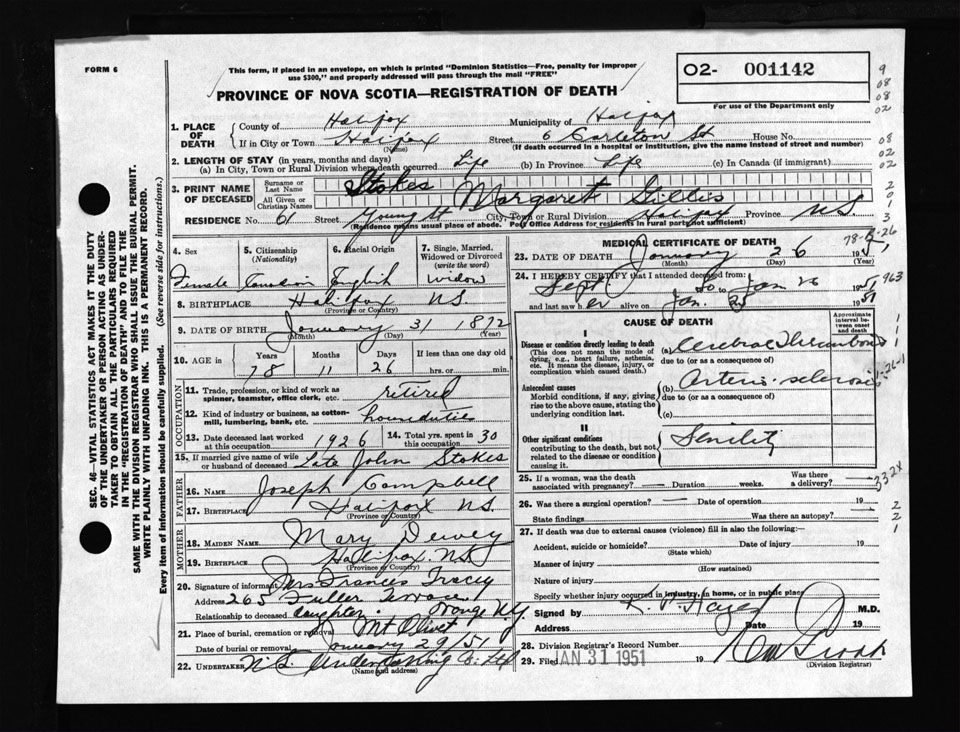 FORM 6
This form, if placed in an envelope, on which is printed "Dominion Statistics—Free, penalty for improper
use $300," and properly addressed will pass through the mail "FREE"
PROVINCE OF NOVA SCOTIA—REGISTRATION OF DEATH
02- 001142
For use of the Department only
9
08
08
02
08
02
02
2
0
1
3
SEC. 46—VITAL STATISTICS ACT MAKES IT THE DUTY
OF THE UNDERTAKER OR PERSON ACTING AS UNDER-
TAKER TO OBTAIN ALL THE PARTICULARS REQUIRED
IN THE "REGISTRATION OF DEATH" AND TO FILE THE
SAME WITH THE DIVISION REGISTRAR WHO SHALL ISSUE THE BURIAL PERMIT.
WRITE PLAINLY WITH UNFADING INK. THIS IS A PERMANENT RECORD.
Every item of information should be carefully supplied. (See reverse side for instructions.)
1. PLACE OF DEATH County of Halifax Municipality of Halifax
If in City or Town Halifax Street 6 Carleton St House No.
(Name) (If death occurred in a hospital or institution, give the name instead of street and number)
2. LENGTH OF STAY (in years, months and days)
(a) In City, Town or Rural Division where death occurred Life (b) In Province Life (c) In Canada (if immigrant)
3. PRINT NAME OF DECEASED Surname or Last Name Stokes
All Given or Christian Names Margaret Gillis
RESIDENCE No. 61 Street Young St City, Town or Rural Division Halifax Province N.S.
(Residence means usual place of abode. Post Office Address for residents in rural parts not sufficient)
4. Sex 5. Citizenship (Nationality) 6. Racial Origin 7. Single, Married, Widowed or Divorced (write the word)
Female Canadian English widow
8. BIRTHPLACE Halifax N.S.
(Province or Country)
9. DATE OF BIRTH January 31 1872
(Month) (Day) (Year)
10. AGE in Years Months Days If less than one day old
78 11 26 hrs. or min.
OCCUPATION
11. Trade, profession, or kind of work as
spinner, teamster, office clerk, etc. retired
12. Kind of industry or business, as cotton-
mill, lumbering, bank, etc. houseduties
13. Date deceased last worked
at this occupation 1926 14. Total yrs. spent in
this occupation 30
15. If married give name of wife
or husband of deceased Late John Stokes
FATHER
16. NAME Joseph Campbell
17. BIRTHPLACE Halifax N.S.
(Province or Country)
MOTHER
18. MAIDEN NAME Mary Dewey
19. BIRTHPLACE Halifax, N.S.
(Province or Country)
20. Signature of informant Mrs Frances Tracey
Address 265 Fuller Terrace
Relationship to deceased daughter.
21. Place of burial, cremation or removal Mt Olivet
Date of burial or removal January 29/51
22. UNDERTAKER N.S. Undertaking Co. Ltd
(Name and address)
MEDICAL CERTIFICATE OF DEATH
23. DATE OF DEATH January 26 19
(Month) (Day) (Year)
24. I HEREBY CERTIFY that I attended deceased from:
Sept to Jan 26 1951
and last saw her alive on Jan. 25 1951
963
CAUSE OF DEATH
Approximate interval between onset and death
I
Disease or condition directly leading to death
(This does not mean the mode of dying, e.g., heart failure, asthenia, etc. It means the disease, injury, or complication which caused death.)
(a) Cerebral Thrombosis
due to (or as a consequence of)
Antecedent causes
Morbid conditions, if any, giving rise to the above cause, stating the underlying condition last.
(b) Arterio-sclerosis
due to (or as a consequence of)
(c)
II
Other significant conditions
contributing to the death, but not related to the disease or condition causing it.
Senility
25. If a woman, was the death
associated with pregnancy? — Duration weeks. Was there a delivery? —
26. Was there a surgical operation? — Date of operation 19
State findings Was there an autopsy?
27. If death was due to external causes (violence) fill in also the following:—
Accident, suicide or homicide? Date of injury 19
(State which)
Manner of injury
(How sustained)
Nature of injury
Specify whether injury occurred in industry, in home, or in public place
Signed by M.D.
Address Date 19
28. Division Registrar's Record Number
29. Filed JAN 31 1951 19
(Division Registrar)